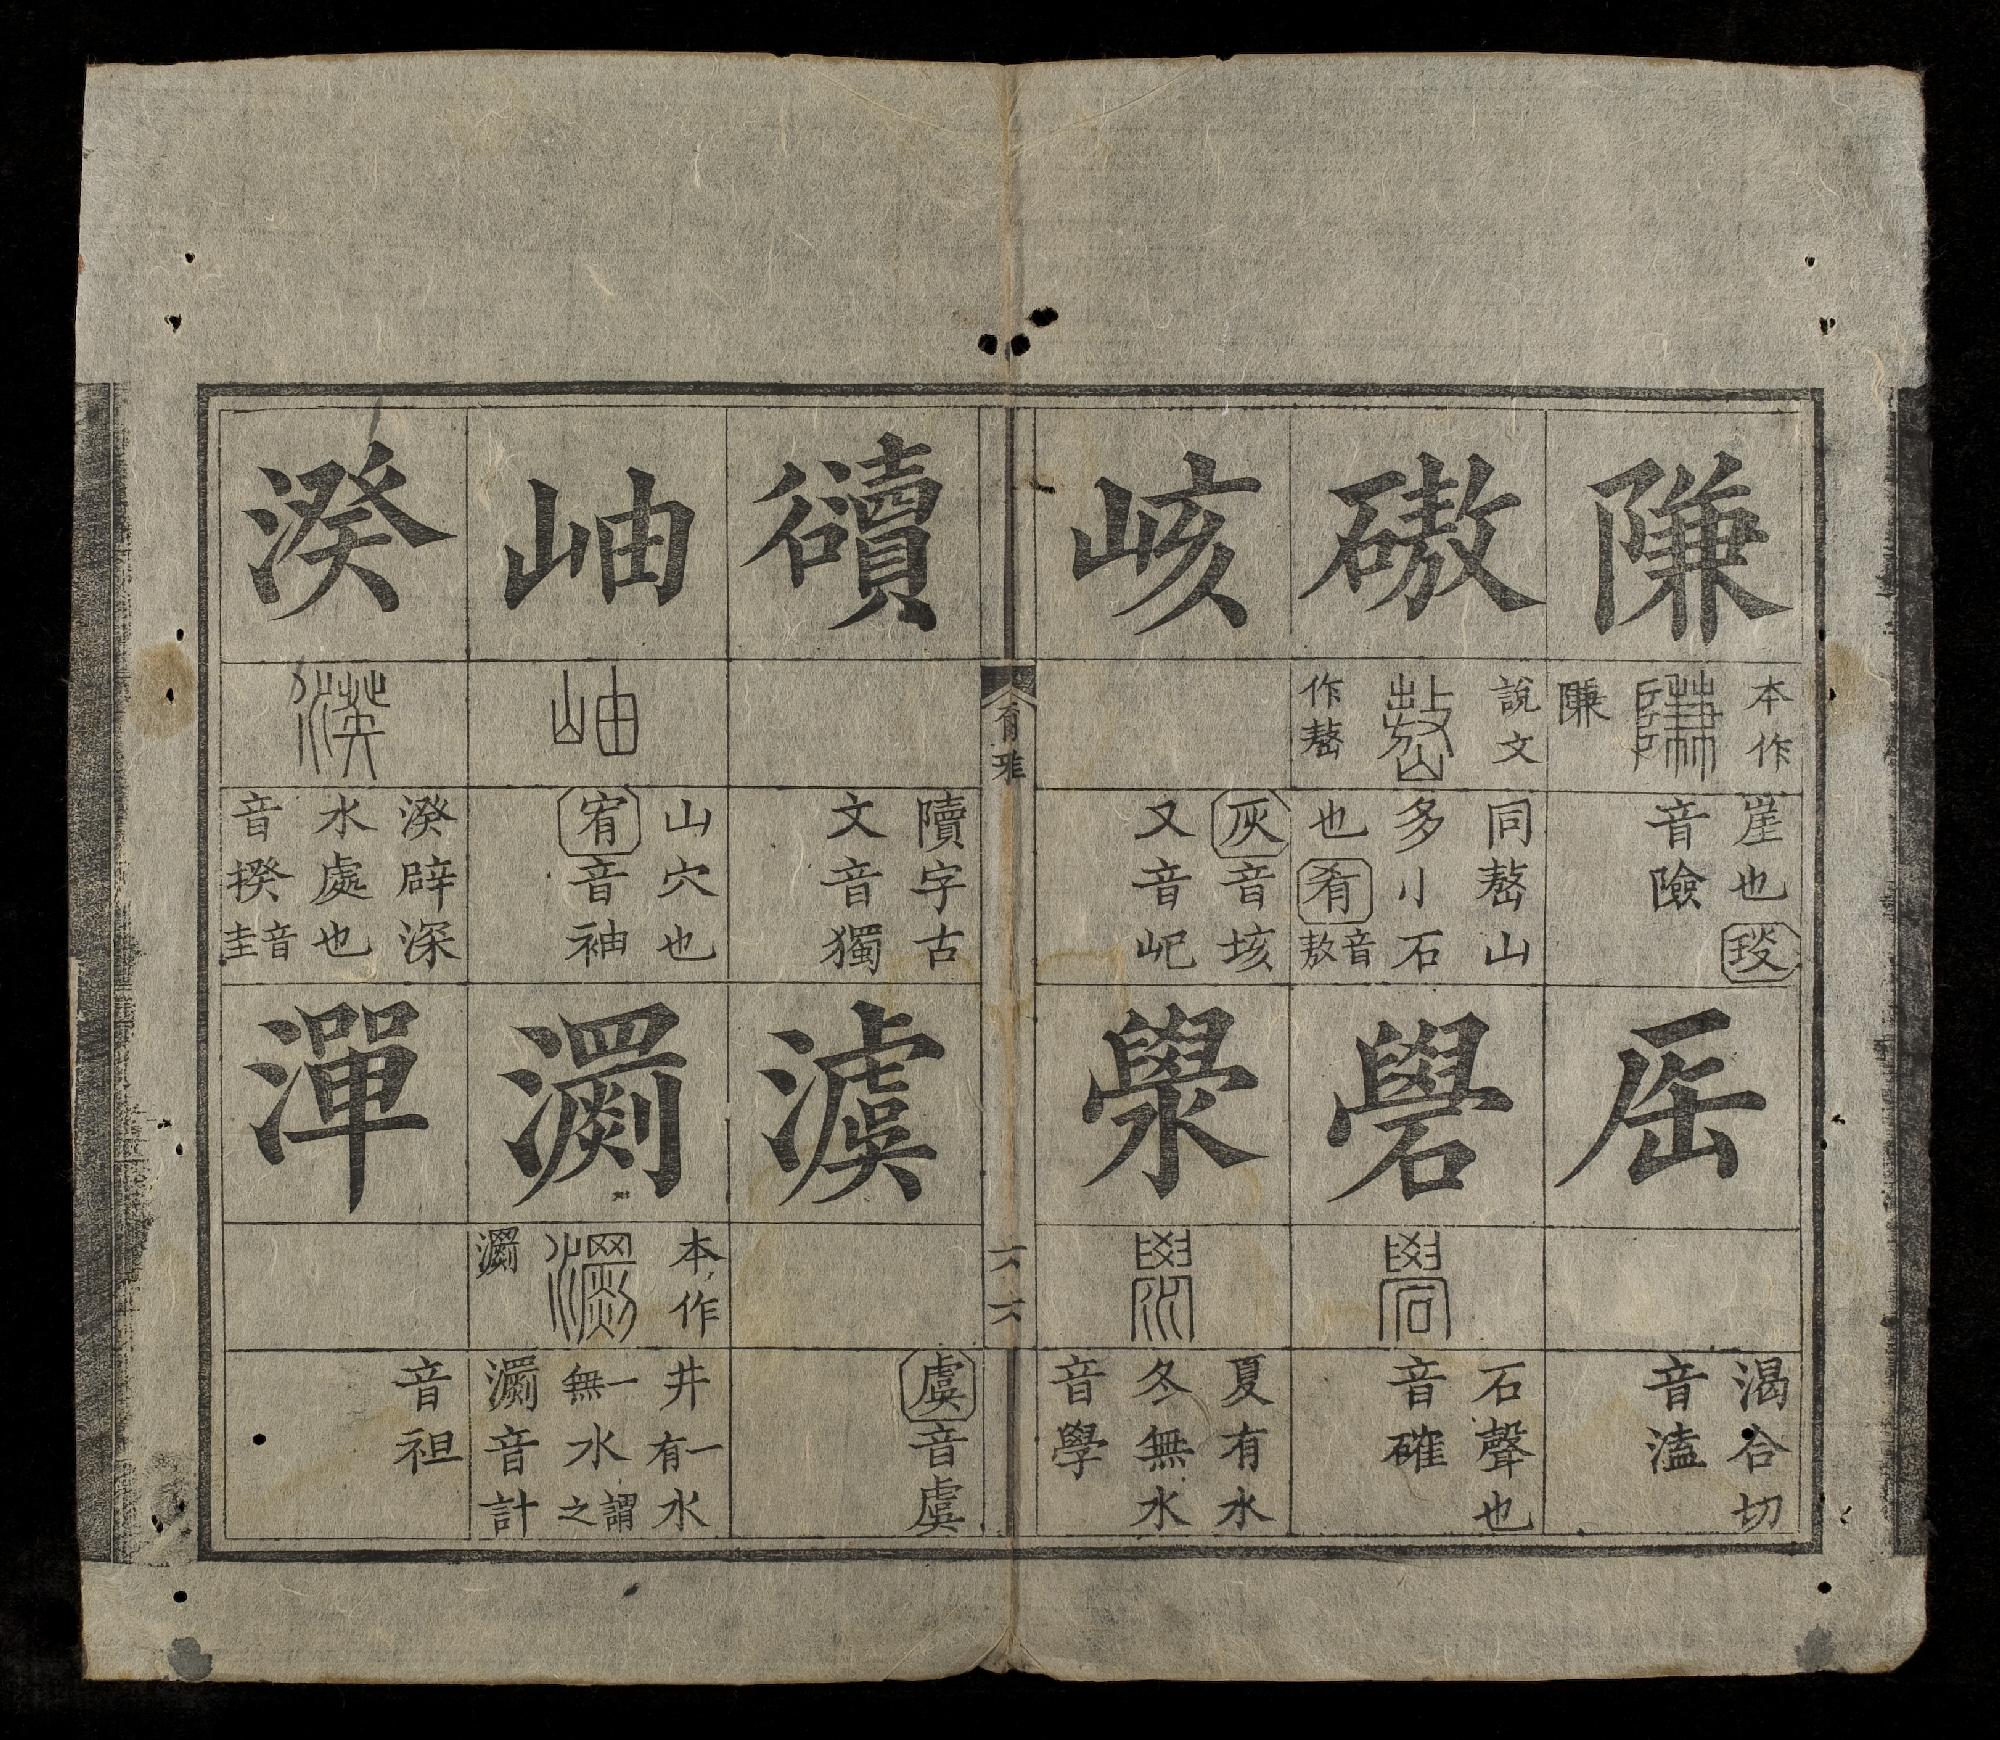 隒
本作
隒
崖也琰
音險
厒
渴合切
音溘
磝
說文
作嶅
同嶅山
多小石
也肴音敖
礐
石聲也
音確
峐
灰音垓
又音屺
澩
夏有水
冬無水
音學
豄
𨽍字古
文音獨
澞
虞音虞
岫
山穴也
宥音袖
瀱
本作
瀱
井一有水
一無水謂之
瀱音計
湀
湀辟深
水處也
音揆音圭
潬
音袒